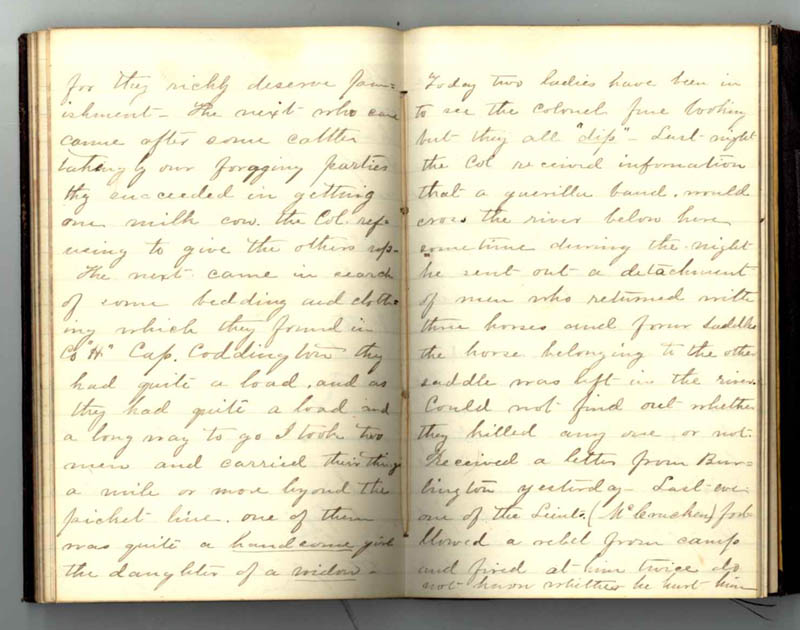 for they richly deserve pun-
ishment - The next who came
came after some cattle
taking by our foragging parties
thy succeeded in getting
one milk cow. the Col. ref-
using to give the others up -
The next came in search
of some bedding and cloth-
ing which they found in
Co "H" Cap. Coddington they
had quite a load, and as
they had quite a load and
a long way to go I took two
men and carried their things
a mile or more beyond the
picket line. one of them
was quite a handsome girl
the daughter of a widow -
Today two ladies have been in
to see the Colonel fine looking
but they all "dip" - Last night
the Col. received infornation
that a guerilla band, would
cross the river below here
sometime during the night
he sent out a detachment
of men who returned with
three horses and four saddles
the horse belonging to the other
saddle was left in the river.
Could not find out whether
they killed any one or not.
Received a letter from Bur-
lington yesterday - Last eve.
one of the Lieuts. (McCracken) fol-
llowed a rebel from camp
and fired at him twice do
not know whether he hurt him